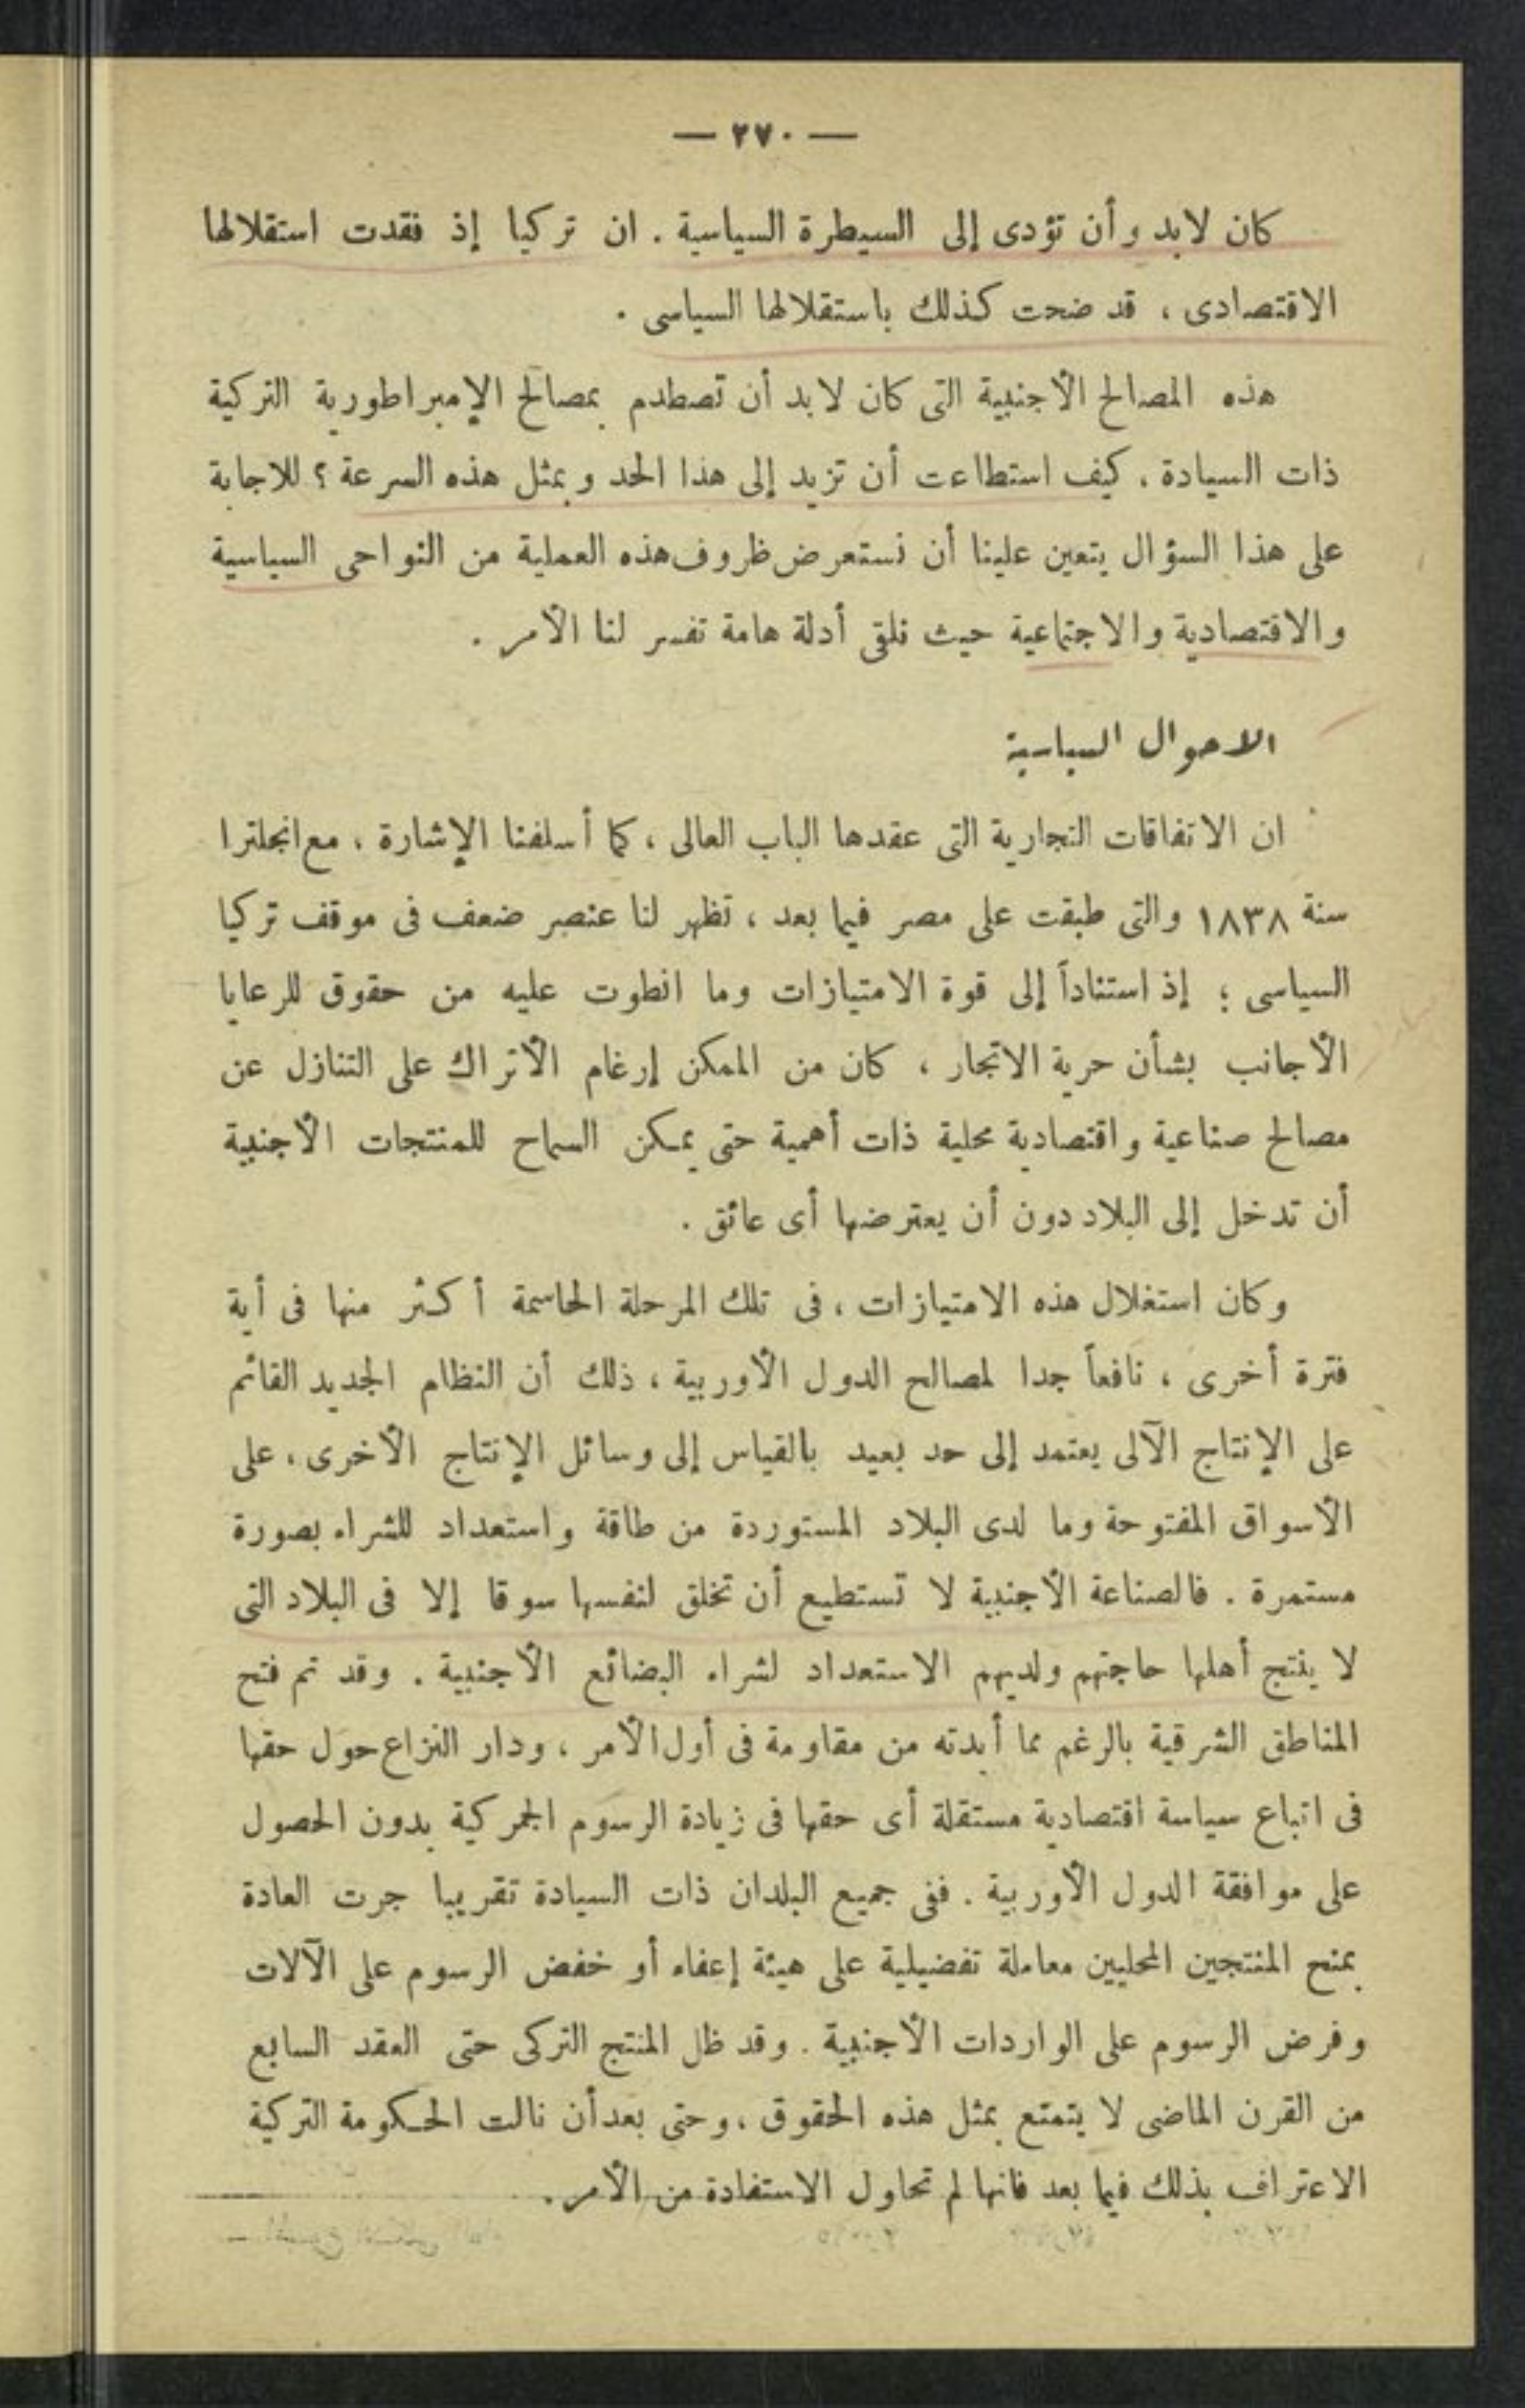 — ٢٧٠ —
كان لابد وأن تؤدى إلى السيطرة السياسية . ان تركيا إذ فقدت استقلالها
الاقتصادى ، قد ضحت كذلك باستقلالها السياسى .
هذه المصالح الأجنبية التى كان لابد أن تصطدم بمصالح الإمبراطورية التركية
ذات السيادة ، كيف استطاعت أن تزيد إلى هذا الحد وبمثل هذه السرعة ؟ للاجابة
على هذا السؤال يتعين علينا أن نستعرض ظروف هذه العملية من النواحى السياسية
والاقتصادية والاجتماعية حيث نلقى أدلة هامة تفسر لنا الأمر .
الاحوال السياسية
ان الاتفاقات التجارية التى عقدها الباب العالى ، كما أسلفنا الإشارة ، مع انجلترا
سنة ١٨٣٨ والتى طبقت على مصر فيما بعد ، تظهر لنا عنصر ضعف فى موقف تركيا
السياسى ؛ إذ استناداً إلى قوة الامتيازات وما انطوت عليه من حقوق للرعايا
الأجانب بشأن حرية الاتجار ، كان من الممكن إرغام الأتراك على التنازل عن
مصالح صناعية واقتصادية محلية ذات أهمية حتى يمكن السماح للمنتجات الأجنبية
أن تدخل إلى البلاد دون أن يعترضها أى عائق .
وكان استغلال هذه الامتيازات ، فى تلك المرحلة الحاسمة أكثر منها فى أية
فترة أخرى ، نافعاً جدا لمصالح الدول الأوربية ، ذلك أن النظام الجديد القائم
على الإنتاج الآلى يعتمد إلى حد بعيد بالقياس إلى وسائل الإنتاج الأخرى ، على
الأسواق المفتوحة وما لدى البلاد المستوردة من طاقة واستعداد للشراء بصورة
مستمرة . فالصناعة الأجنبية لا تستطيع أن تخلق لنفسها سوقا إلا فى البلاد التى
لا ينتج أهلها حاجتهم ولديهم الاستعداد لشراء البضائع الأجنبية . وقد تم فتح
المناطق الشرقية بالرغم مما أبدته من مقاومة فى أول الأمر ، ودار النزاع حول حقها
فى اتباع سياسة اقتصادية مستقلة أى حقها فى زيادة الرسوم الجمركية بدون الحصول
على موافقة الدول الأوربية . ففى جميع البلدان ذات السيادة تقريبا جرت العادة
بمنح المنتجين المحليين معاملة تفضيلية على هيئة إعفاء أو خفض الرسوم على الآلات
وفرض الرسوم على الواردات الأجنبية . وقد ظل المنتج التركى حتى العقد السابع
من القرن الماضى لا يتمتع بمثل هذه الحقوق ، وحتى بعد أن نالت الحكومة التركية
الاعتراف بذلك فيما بعد فانها لم تحاول الاستفادة من الأمر .